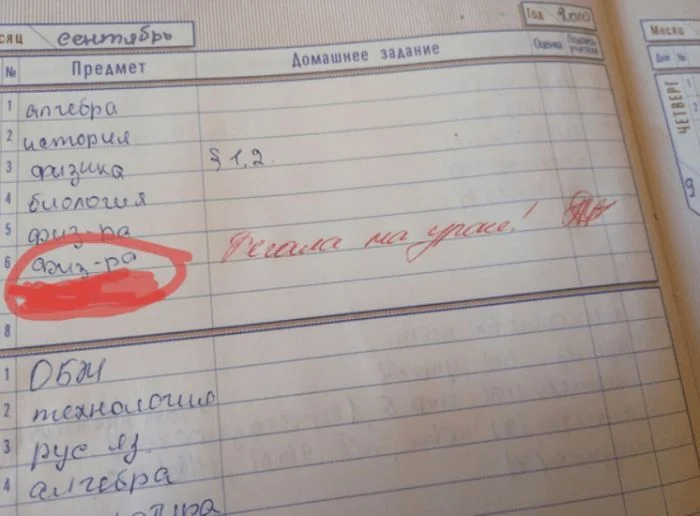 сяц сентябрь
Год 2010
№ Предмет Домашнее задание Оценка Подпись учителя
1 алгебра
2 история
3 физика § 1,2.
4 биология
5 физ-ра
6 физ-ра Бегала на уроке!
8
1 ОБЖ
2 технология
3 рус яз.
4 алгебра
Месяц
Дни №
ЧЕТВЕРГ
1
9